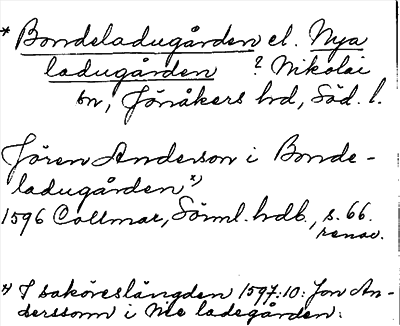 * Bondeladugården el. Nya
ladugården ? Nikolai
sn, Jönåkers hd, Söd. l.
Jören Anderson i Bonde-
ladugården *)
1596 Collmar, Sörml. hdb., s. 66.
renov.
*) I saköreslängden 1597:10: Jon An-
derssonn i Nie ladegården.